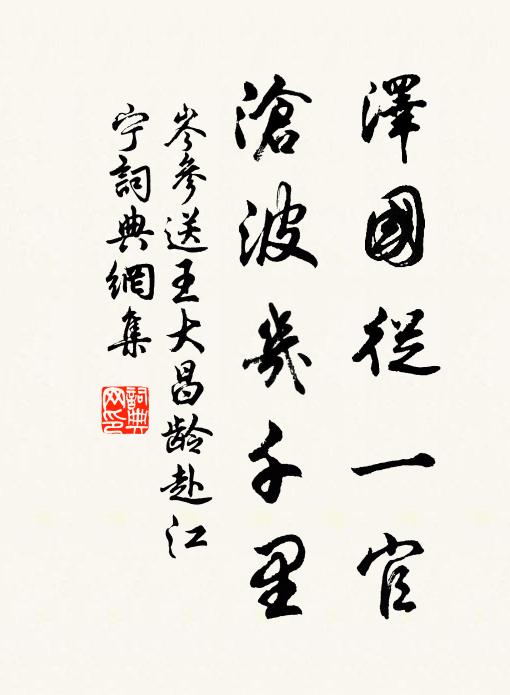 澤國從一官
滄波幾千里
岑參送王大昌齡赴江
宁詞典網集
詞典
网印